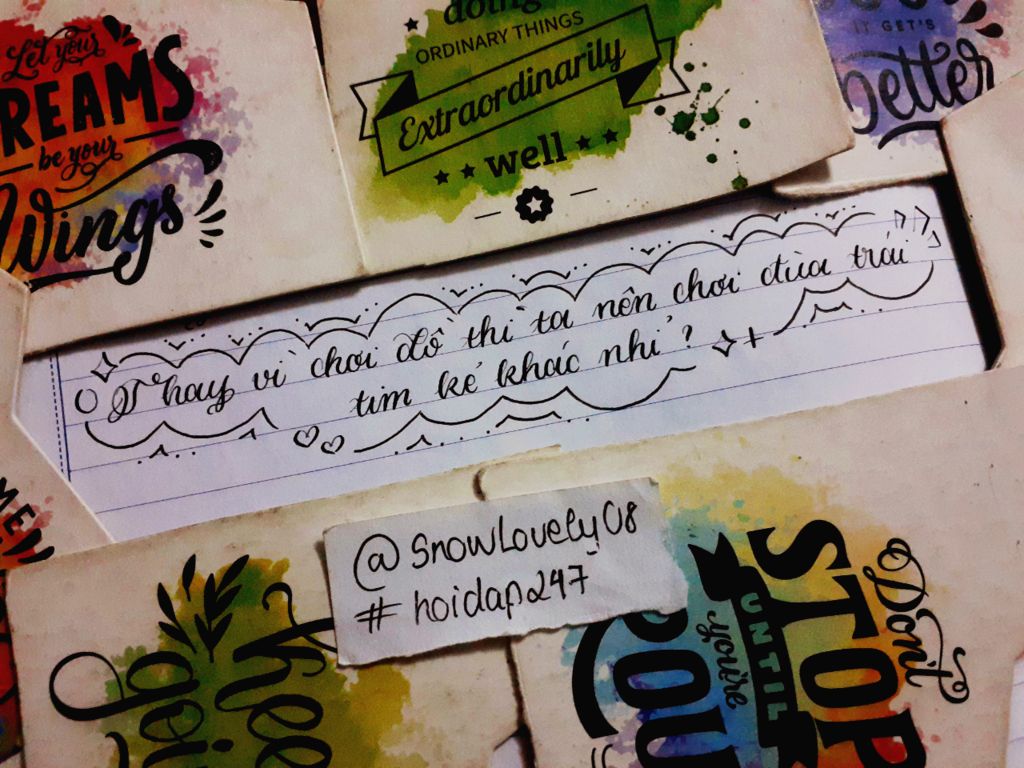 Let your
DREAMS
be your
Wings
doing
ORDINARY THINGS
Extraordinarily
well
IT GET'S
better
Thay vì chơi đồ thì ta nên chơi đùa trái
tim kẻ khác nhỉ?
@SnowLovely08
#hoidap247
Don't
STOP
UNTIL
you're